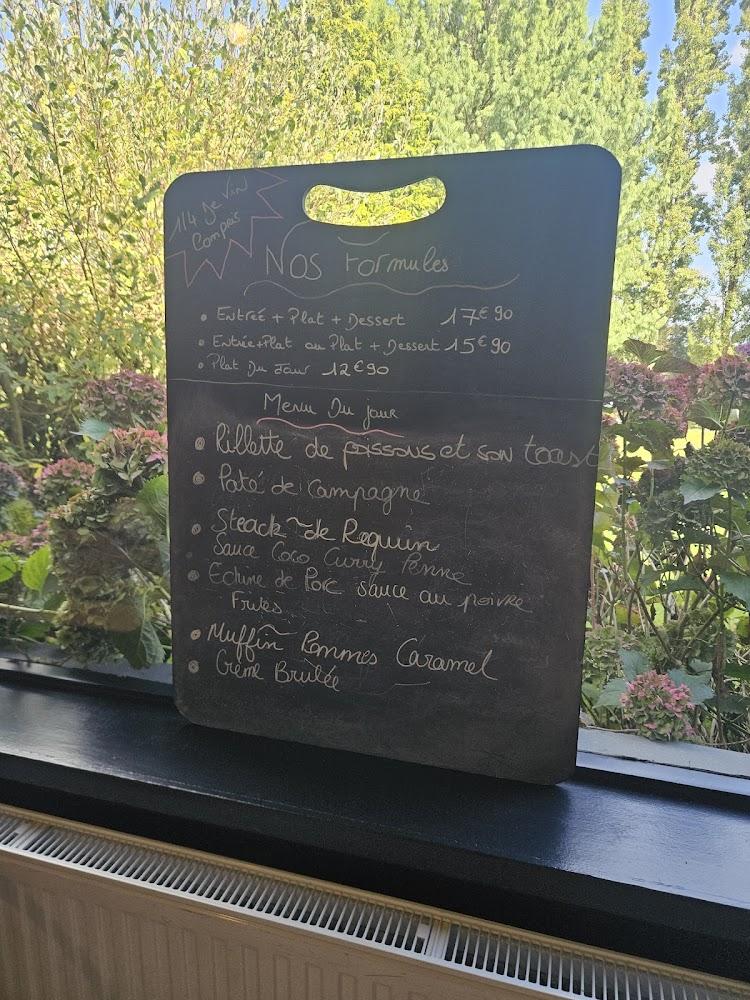 1/4 de Vin
Compris
Nos Formules
• Entreé + Plat + Dessert 17€90
• Entrée+Plat ou Plat + Dessert 15€90
• Plat Du Jour 12€90
Menu Du jour
• Rillette de poissons et son toast
• Paté de Campagne
• Steack de Requin
Sauce Coco Curry Penne
• Echine de Porc sauce au poivre
Frites
• Muffin Pommes Caramel
• Crème Brûlée